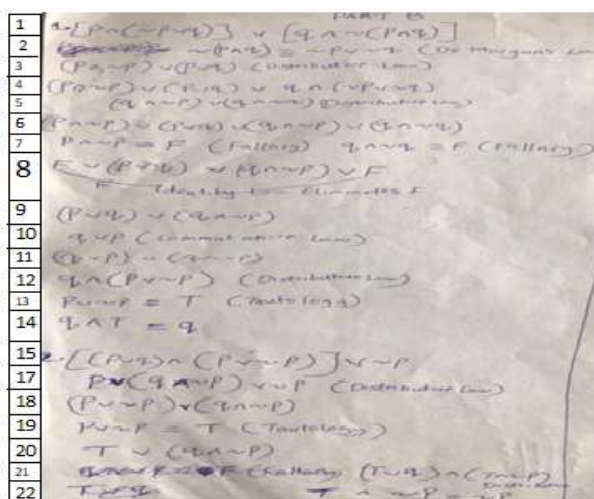 PART B
1 [P∧(~P∨q)] ∨ [q∧~(P∧q)]
2 ~(P∧q) ≡ ~P∨~q (De Morgans Law
3 (P∧~P)∨(P∨q) (Distributive Law)
4 (P∧~P)∨(P∧q) ∨ q∧(~P∨~q)
5 (q∧~P)∨(q∧~q) Distributive law
6 (P∧~P)∨(P∨q)∨(q∧~P)∨(q∧~q)
7 P∧~P = F (Fallacy) q∧~q = F (Fallacy)
8 F∨(P∨q)∨(q∧~P)∨F
F Identity Law eliminates F
9 (P∨q)∨(q∧~P)
10 q∨P (Commutative Law)
11 (q∨P)∨(q∧~P)
12 q∧(P∨~P) (Distributive Law)
13 P∨~P = T (Tautology)
14 q∧T = q
15 [(P∨q)∧(P∨~P)]∨~P
17 P∨(q∧~P)∨~P (Distributive Law)
18 (P∨~P)∨(q∧~P)
19 P∨~P = T (Tautology)
20 T∨(q∧~P)
21 (Fallacy) (T∨q)∧(T∧~P)
22 T∨q T∧~P